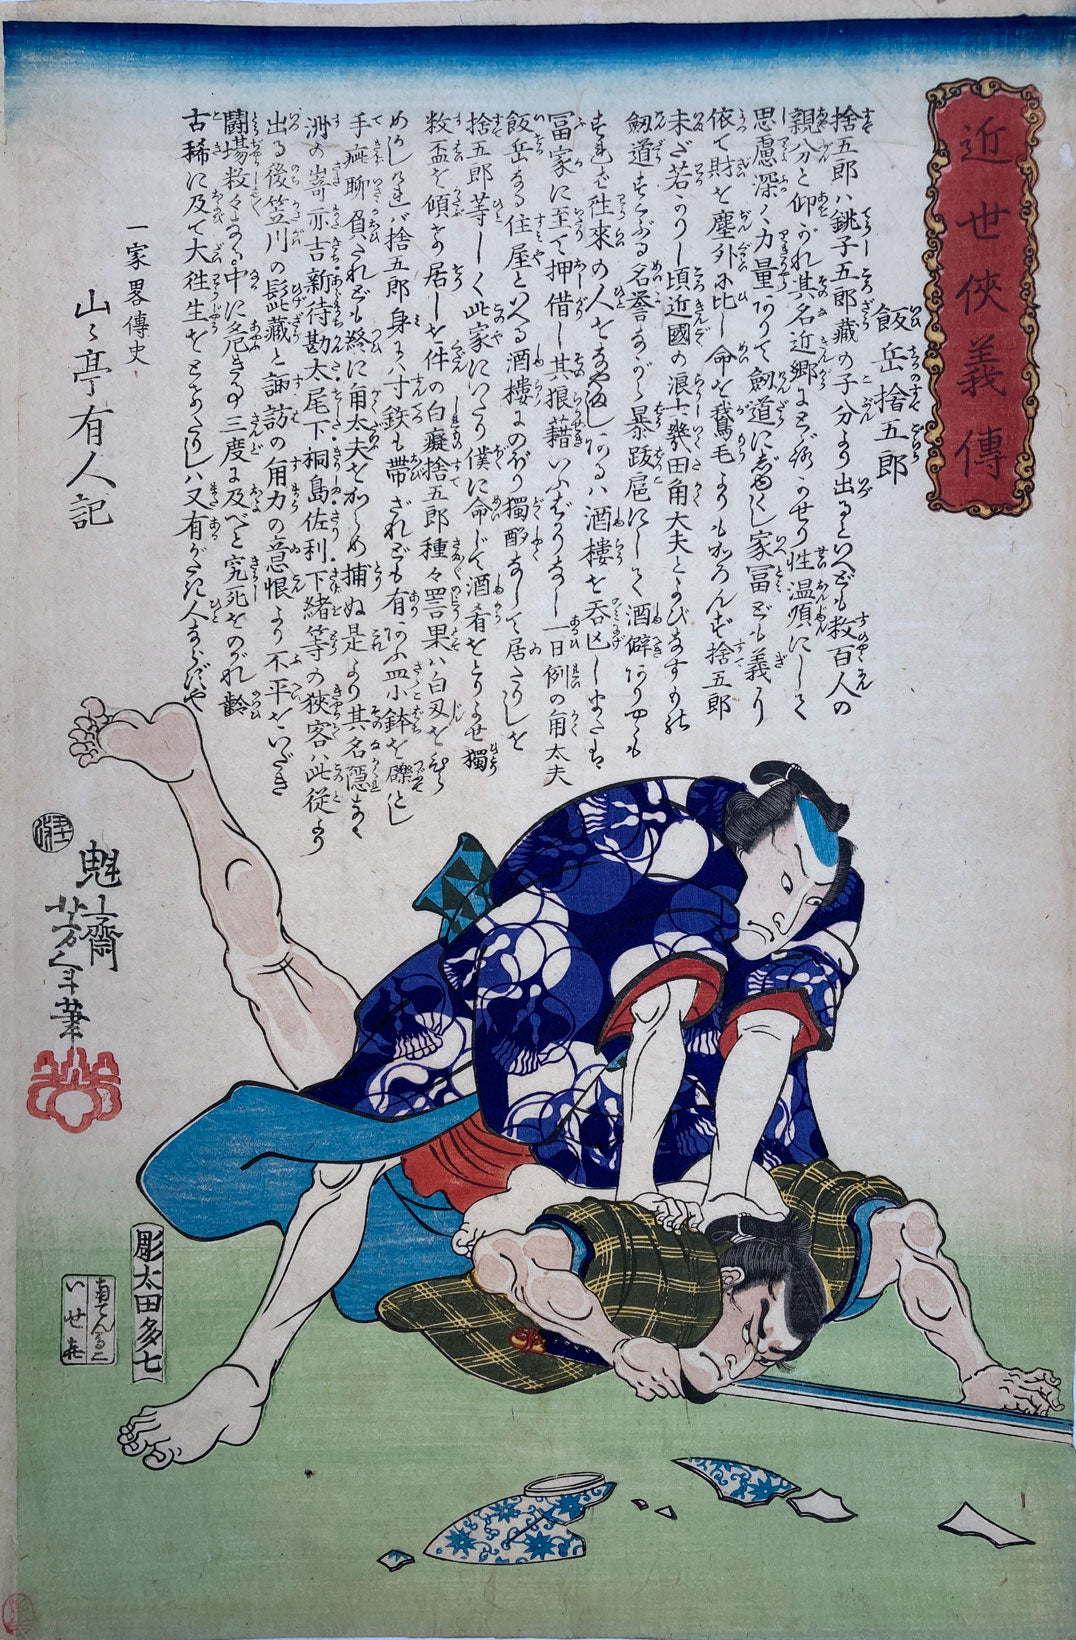 近世侠義傳
飯岳捨五郎
捨五郎ハ銚子五郎藏の子分より出るといへども数百人の
親分と仰がれ其名近郷に せり性温順にして
思慮深く力量ありて剱道に 家冨ども義に
依て財を塵外に比し命を鵞毛よりもかろんず捨五郎
未ざ若かりし頃近國の浪士幾田角大夫とよびなすもの
剱道すぐるる名誉ながら暴跋扈にして酒僻あり
往來の人をなやましあるハ酒樓を呑 しまたハ
冨家に至て押借し其狼藉いふばかりなし一日例の角太夫
飯岳なる住屋といへる酒樓にのぼり獨酌なして居たりしを
捨五郎等しく此家にいたり僕に命じて酒肴をとりよせ獨
数盃を傾け居しを件の白癡捨五郎種々詈果ハ白刃をひら
めかしければ捨五郎身に寸鉄も帯ざれども有あふ皿小鉢を礫とし
手疵聊負たれども終に角太夫をからめ捕ぬ是より其名隠なく
洲の嵜亦吉・新待勘太・尾下・桐島佐利・下緒等の狭客ハ此従より
出る後笠川の髭藏と諏訪の角力の意恨より不平をいだき
闘場数々なる中に危き事三度に及べど究死をのがれ齢
古稀に及て大往生を たりしハ又有がたき人ならずや
一家畧傳史
山々亭有人記
魁斎芳年筆
彫太田多七
いせ喜